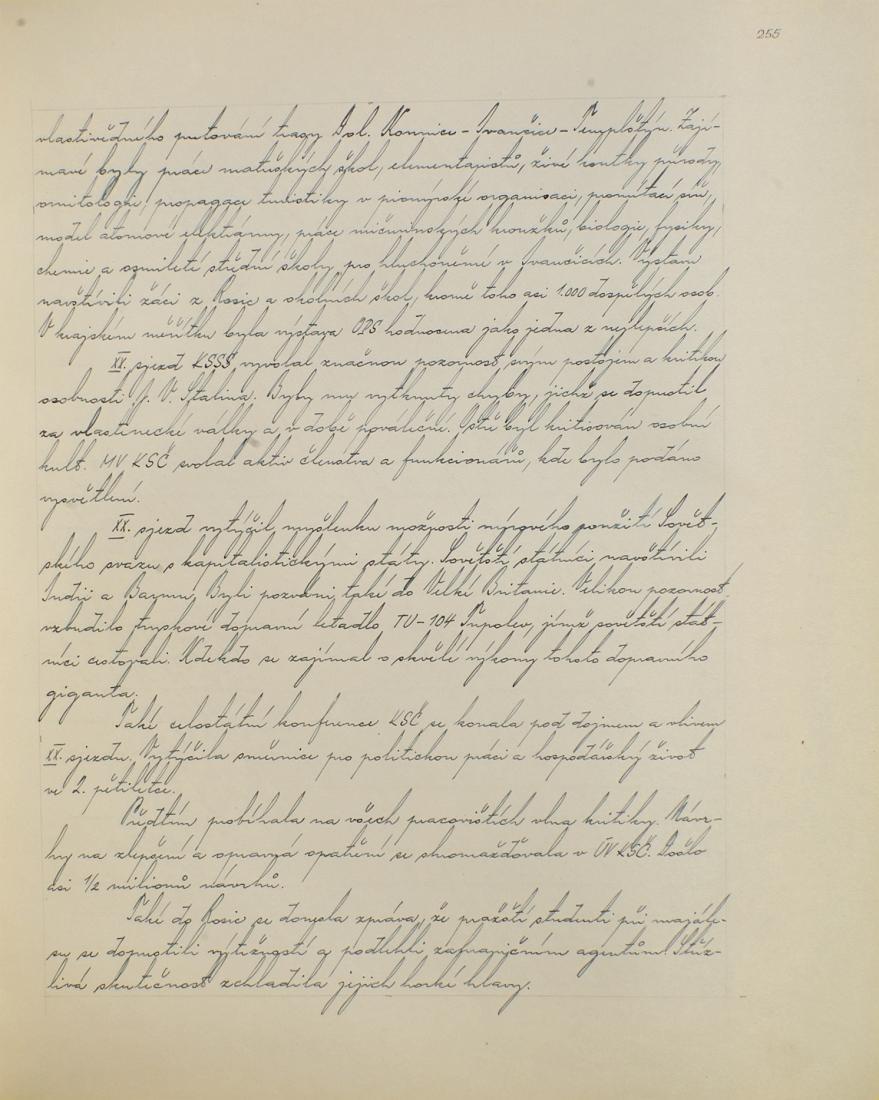 255
vlastivědného putování trasy Dol. Kounice - Ivančice - Templštýn. Zají-
mavé byly práce mateřských škol, elementaristů, živé koutky přírody,
ornitologie, propagace turistiky v pionýrské organisaci, promítací síň,
model atomové elektrárny, práce mičurinských kroužků, biologie, fysiky,
chemie a osmileté střední školy pro hluchoněmé v Ivančicích. Výstavu
navštívili žáci z Rosic a okolních škol, kromě toho asi 1.000 dospělých osob.
V krajském měřítku byla výstava ODS hodnocena jako jedna z nejlepších.
XX. sjezd KSSS vyvolal značnou pozornost svým postojem a kritikou
osobnosti J. V. Stalina. Byly mu vytknuty chyby, jichž se dopustil
za vlastenecké války a v době poválečné. Ostře byl kritisován osobní
kult. MV KSČ svolal aktiv členstva a funkcionářů, kde bylo podáno
vysvětlení.
XX. sjezd vytýčil myšlenku možnosti mírového soužití Sovět-
ského svazu s kapitalistickými státy. Sovětští státníci navštívili
Indii a Barmu. Byli pozváni také do Velké Britanie. Velikou pozornost
vzbudilo tryskové dopravní letadlo TU-104 Tupolev, jímž sovětští stát-
níci cestovali. Kdekdo se zajímal o skvělé výkony tohoto dopravního
giganta.
Také celostátní konference KSČ se konala pod dojmem a vlivem
XX. sjezdu. Vytýčila směrnice pro politickou práci a hospodářský život
ve 2. pětiletce.
Předtím probíhala na všech pracovištích vlna kritiky. Návr-
hy na zlepšení a opatření se shromažďovala v ÚV KSČ. Došlo
asi 1/2 milionů návrhů.
Také do Rosic se donesla zpráva, že pražští studenti při majále-
su se dopustili výtržností a podlehli zahraničním agentům. Stříz-
livá skutečnost zchladila jejich horké hlavy.